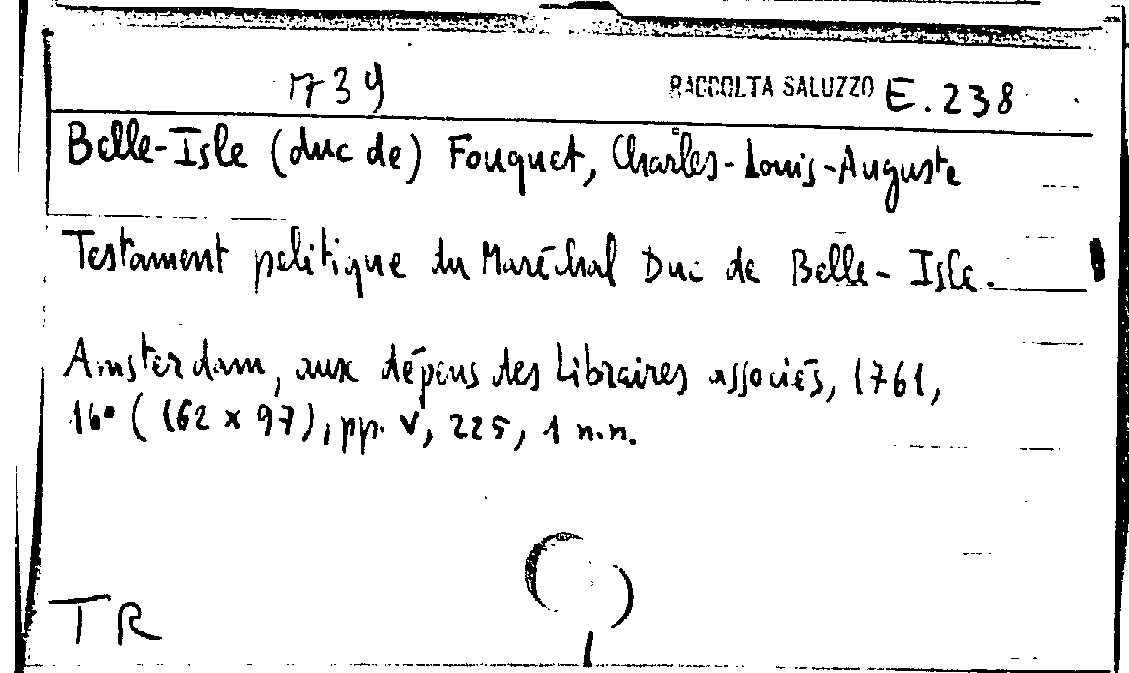 1739 RACCOLTA SALUZZO E.238
Belle-Isle (duc de) Fouquet, Charles-Louis-Auguste
Testament politique du Maréchal Duc de Belle-Isle.
Amsterdam, aux dépens des Libraires associés, 1761,
16° (162 x 97), pp. V, 225, 1 n.n.
TR